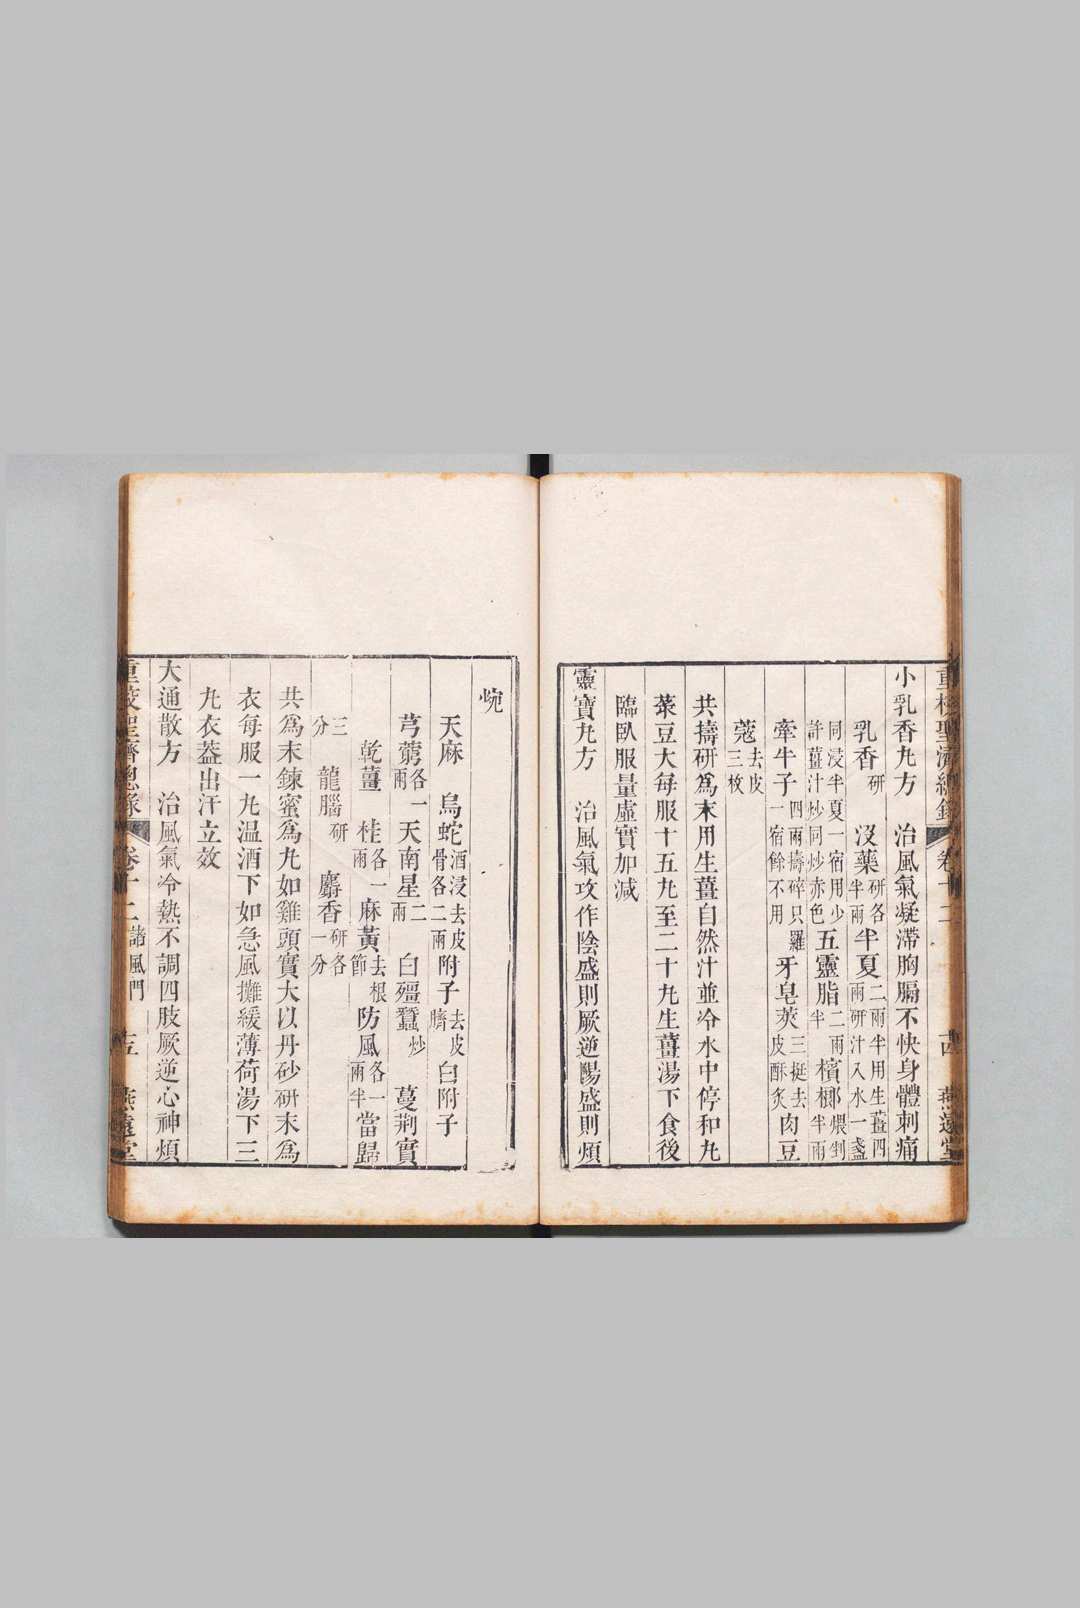 重校聖濟總錄 卷十二 十四 燕遠堂
小乳香丸方 治風氣凝滯胸膈不快身體刺痛
乳香研 沒藥研各半兩半夏二兩半用生薑四兩研汁入水一盞
同浸半夏一宿用少許薑汁炒同炒赤色五靈脂二兩半檳榔煨剉半兩
牽牛子四兩擣碎只羅一宿餘不用牙皂莢三挺去皮酥炙肉豆
蔻去皮三枚
共擣研爲末用生薑自然汁並冷水中停和丸
菉豆大每服十五丸至二十丸生薑湯下食後
臨臥服量虛實加減
靈寶丸方 治風氣攻作陰盛則厥逆陽盛則煩
惋
天麻 烏蛇酒浸去皮骨各二兩附子去皮臍白附子
芎藭各一兩天南星二兩 白殭蠶炒 蔓荊實
乾薑 桂各一兩麻黃去根節防風各一兩半當歸
三分 龍腦研 麝香研各一分
共爲末鍊蜜爲丸如雞頭實大以丹砂研末爲
衣每服一丸温酒下如急風攤緩薄荷湯下三
丸衣葢出汗立效
大通散方 治風氣冷熱不調四肢厥逆心神煩
重校聖濟總錄 卷十二 諸風門 十五 燕遠堂